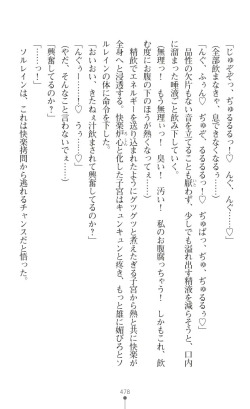 「じゅぞぞっ、ぢゅるるるっ♡　んぐ、んぐ……っ♡」
(全部飲まなきゃ、息できなくなるぅ……っ)
「んぐ、ふぅん♡　ぢゅぞ、るるるるっ！　ぢゅぱっ、ぢゅ、ぢゅるるぅ♡」
品性の欠片もない音を立てることも厭わず、少しでも溢れ出す精液を減らそうと、口内
に溜まった唾液ごと飲み下していく。
(無理っ！　もう無理ぃっ！　臭い！　汚い！　私のお腹腐っちゃう！　しかもこれ、飲
む度にお腹の下のほうが熱くなってぇ……っ♡)
精飲でエネルギーを送り込まれたようにグツグツと煮えたぎる子宮から熱と共に快楽が
全身へと浸透する。快楽が心と化した子宮はキュンキュンと疼き、もっと雄に媚びろとソ
ルレインの体に命令を下す。
「おいおい、きたねぇ汁飲まされて興奮してるのか？」
「んぐぅ……っ♡　うぅ……っ♡」
(やだ、そんなこと言わないでぇ……っ)
「興奮してるのか？」
「……っ！」
ソルレインは、これは快楽拷問から逃れるチャンスだと悟った。
478